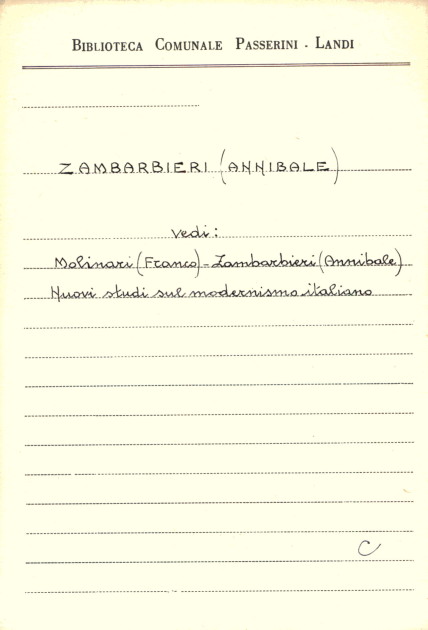 BIBLIOTECA COMUNALE PASSERINI - LANDI
ZAMBARBIERI (ANNIBALE)
vedi:
Molinari (Franco) - Zambarbieri (Annibale)
Nuovi studi sul modernismo italiano
C